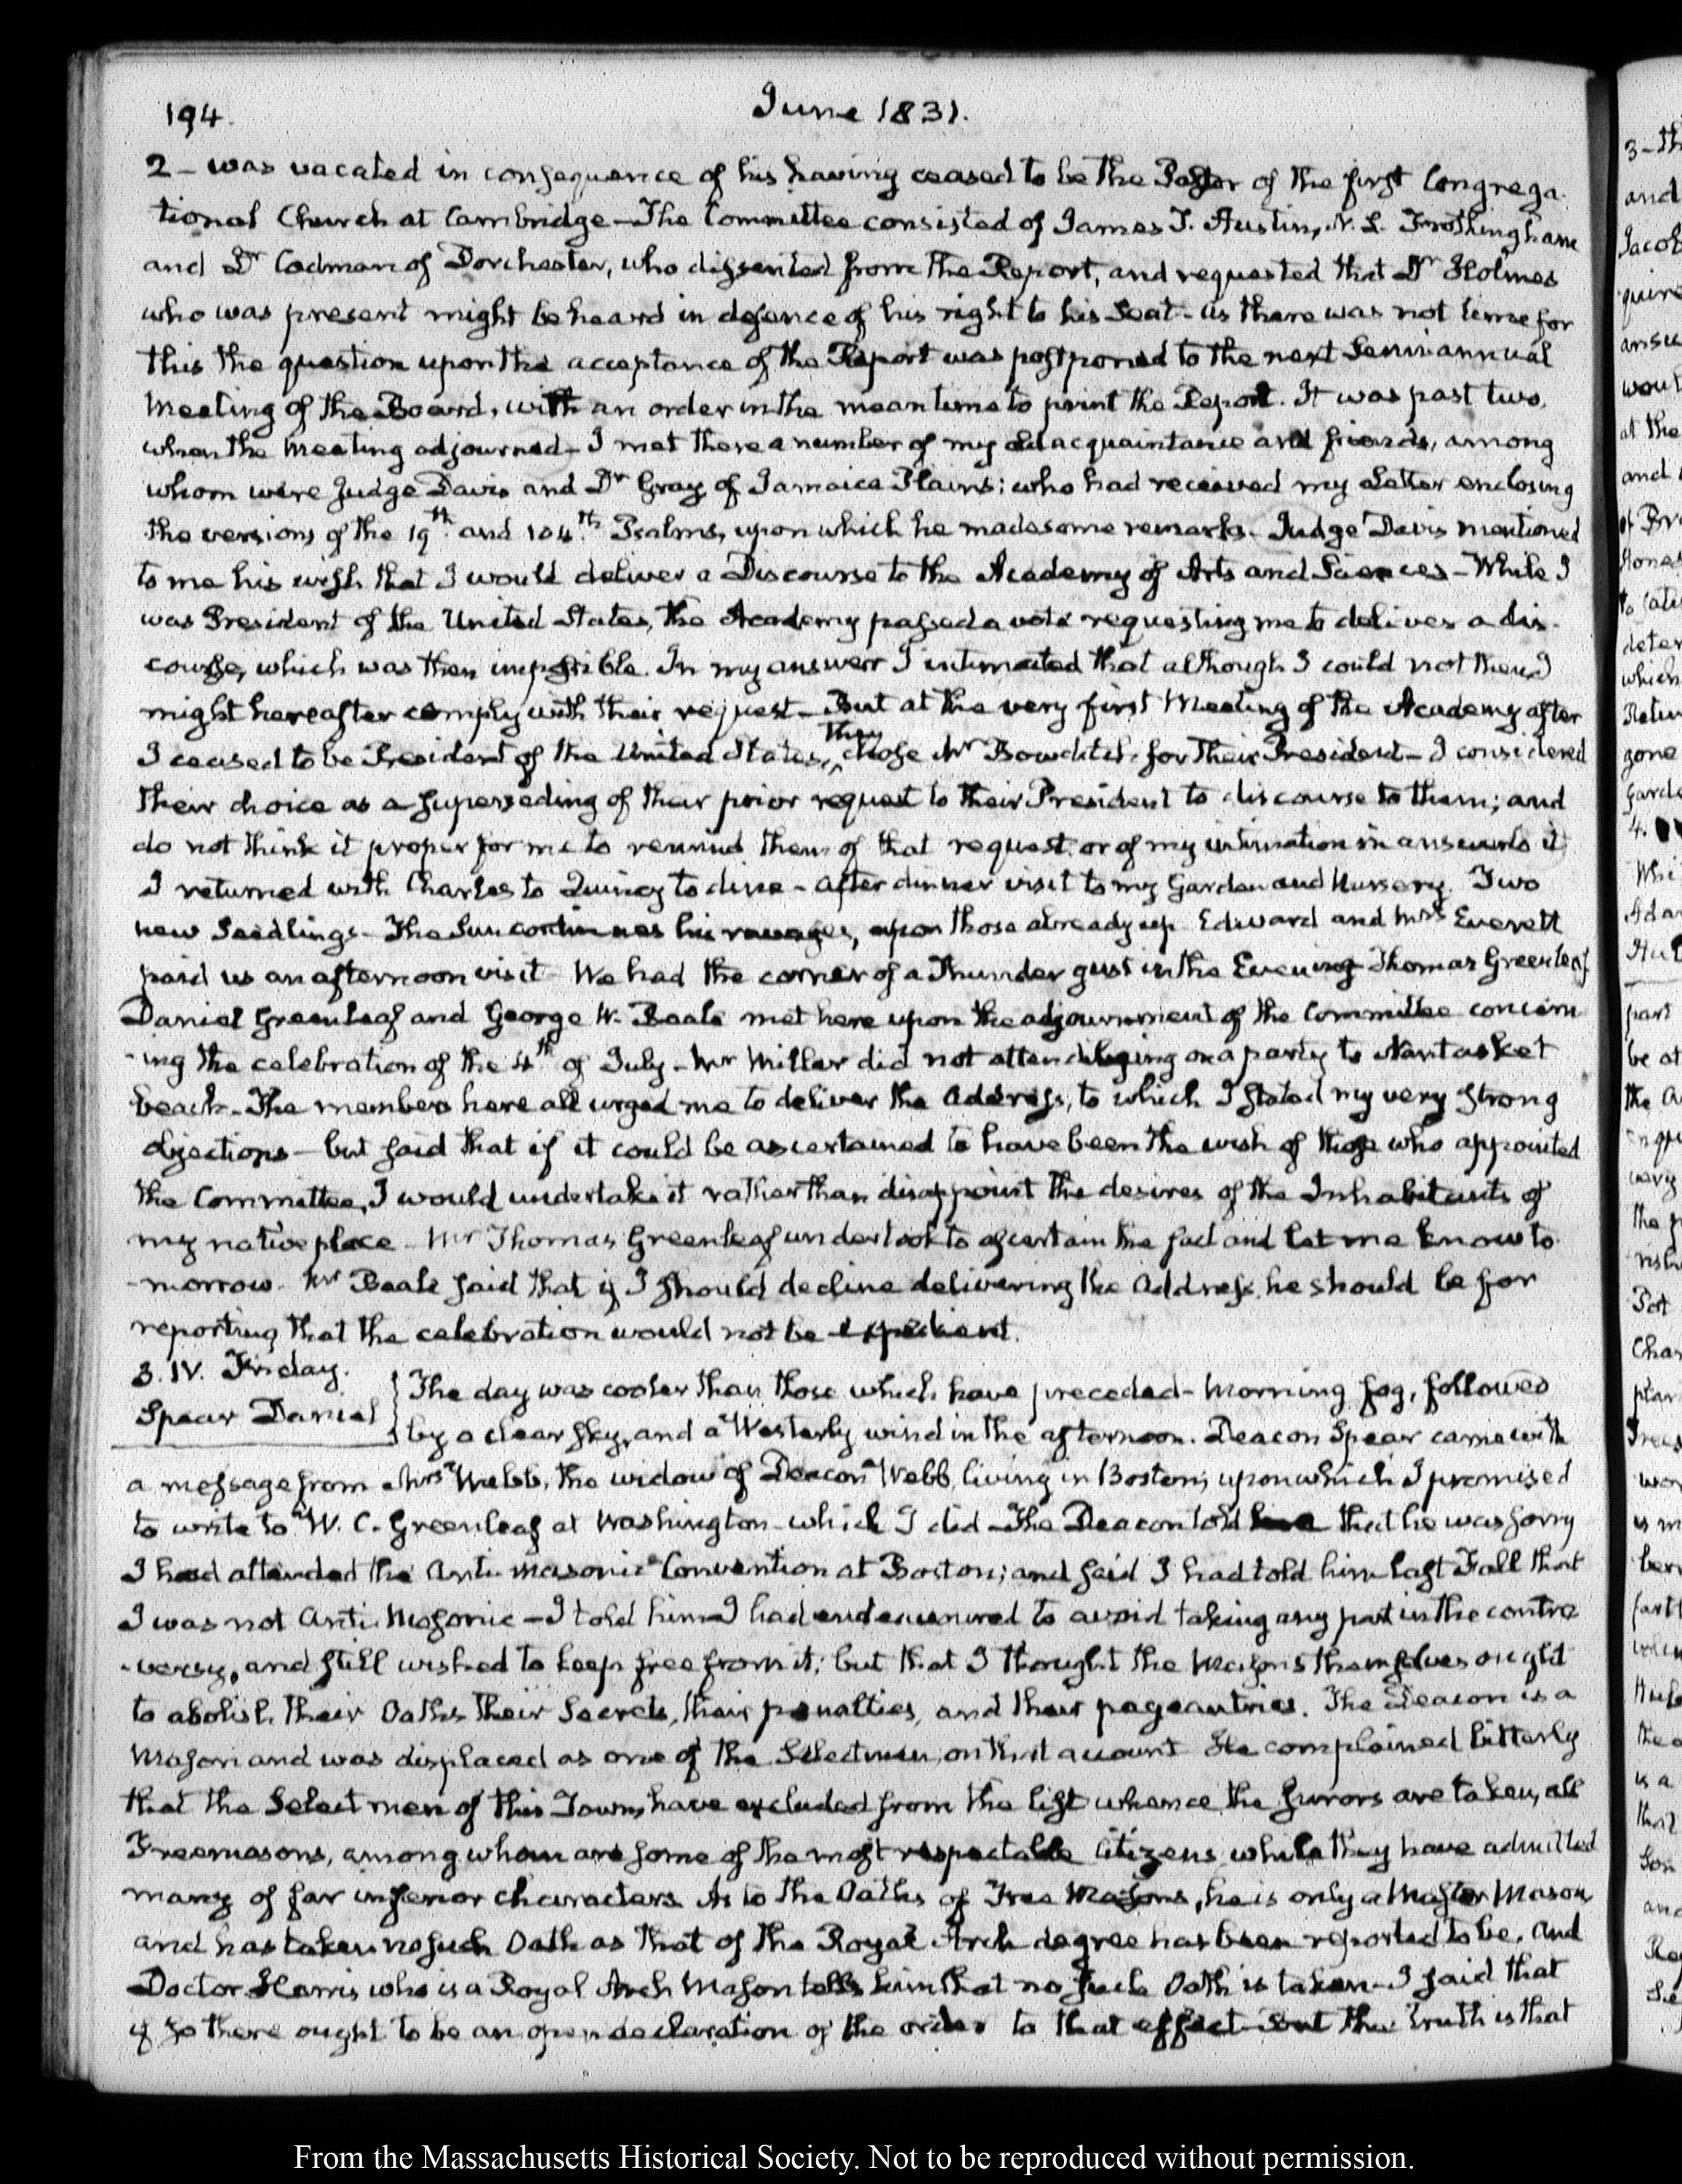 194.
June 1831.
2 – was vacated in consequence of his having ceased to be the Pastor of the first Congrega-
tional Church at Cambridge – The Committee consisted of James T. Austin, N. L. Frothingham
and Dr Codman of Dorchester, who dissented from the Report, and requested that Dr Holmes
who was present might be heard in defence of his right to his Seat – as there was not time for
this the question upon the acceptance of the Report was postponed to the next Semi annual
Meeting of the Board, with an order in the mean time to print the Report. It was past two,
when the Meeting adjourned – I met there a number of my old acquaintance and friends, among
whom were Judge Davis and Dr Gray of Jamaica Plains; who had received my Letter enclosing
the versions of the 19th and 104th Psalms, upon which he made some remarks. Judge Davis mentioned
to me his wish that I would deliver a Discourse to the Academy of Arts and Sciences – While I
was President of the United States, the Academy passed a vote requesting me to deliver a dis-
course, which was then impossible. In my answer I intimated that although I could not then I
might hereafter comply with their request – But at the very first Meeting of the Academy after
I ceased to be President of the United States, they chose Mr Bowditch for their President – I considered
their choice as a superseding of their prior request to their President to discourse to them; and
do not think it proper for me to remind them of that request or of my intimation in answer to it
I returned with Charles to Quincy to dine – after dinner visit to my Garden and Nursery. Two
new Seedlings – The Sun continues his ravages, upon those already up. Edward and Mrs Everett
paid us an afternoon visit – We had the corner of a Thunder gust in the Evening Thomas Greenleaf
Daniel Greenleaf and George W. Beale met here upon the adjournment of the Committee concern
-ing the celebration of the 4th of July – Mr Miller did not attend being on a party to Nantasket
beach – The members here all urged me to deliver the Address, to which I stated my very strong
objections – but said that if it could be ascertained to have been the wish of those who appointed
the Committee, I would undertake it rather than disappoint the desires of the Inhabitants of
my native place – Mr Thomas Greenleaf undertook to ascertain the fact and let me know to
-morrow. Mr Beale said that if I should decline delivering the Address, he should be for
reporting that the celebration would not be expedient.
3. IV. Friday.
Spear Daniel
The day was cooler than those which have preceded – Morning fog, followed
by a clear sky, and a Westerly wind in the afternoon. Deacon Spear came with
a message from Mrs Webb, the widow of Deacon Webb, living in Boston; upon which I promised
to write to W. C. Greenleaf at Washington – which I did – The Deacon told that he was sorry
I had attended the Anti-masonic Convention at Boston; and said I had told him last Fall that
I was not Anti-Masonic – I told him I had endeavoured to avoid taking any part in the contro
-versy, and still wished to keep free from it; but that I thought the Masons themselves ought
to abolish their Oaths their Secrets, their penalties, and their pageantries. The Deacon is a
Mason and was displaced as one of the Selectmen, on that account He complained bitterly
that the Select men of this Town, have excluded from the list whence the jurors are taken, all
Freemasons, among whom are some of the most respectable Citizens while they have admitted
many of far inferior characters As to the Oaths of Free Masons, he is only a Master Mason
and has taken no such Oath as that of the Royal Arch degree has been reported to be. and
Doctor Harris who is a Royal Arch Mason tells him that no such Oath is taken – I said that
if so there ought to be an open declaration of the order to that effect – But the truth is that
From the Massachusetts Historical Society. Not to be reproduced without permission.